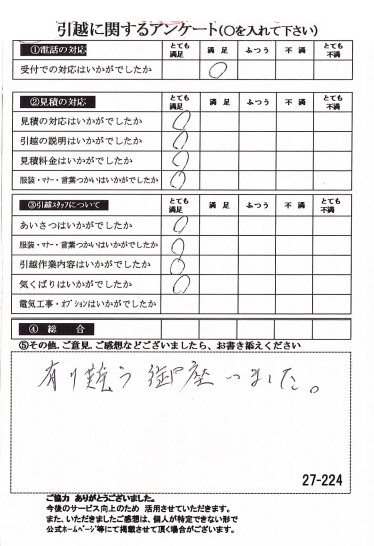 引越に関するアンケート(○を入れて下さい)
①電話の対応 とても満足 満足 ふつう 不満 とても不満
受付での対応はいかがでしたか ○
②見積の対応 とても満足 満足 ふつう 不満 とても不満
見積の対応はいかがでしたか ○
引越の説明はいかがでしたか ○
見積料金はいかがでしたか ○
服装・マナー・言葉つかいはいかがでしたか ○
③引越スタッフについて とても満足 満足 ふつう 不満 とても不満
あいさつはいかがでしたか ○
服装・マナー・言葉つかいはいかがでしたか ○
引越作業内容はいかがでしたか ○
気くばりはいかがでしたか ○
電気工事・オプションはいかがでしたか
④ 総 合
⑤その他、ご意見、ご感想などございましたら、お書き添えください
有り難う御座いました。
27-224
ご協力 ありがとうございました。
今後のサービス向上のため 活用させていただきます。
また、いただきましたご感想は、個人が特定できない形で
公式ホームページ等にて掲載させて頂く場合がございます。